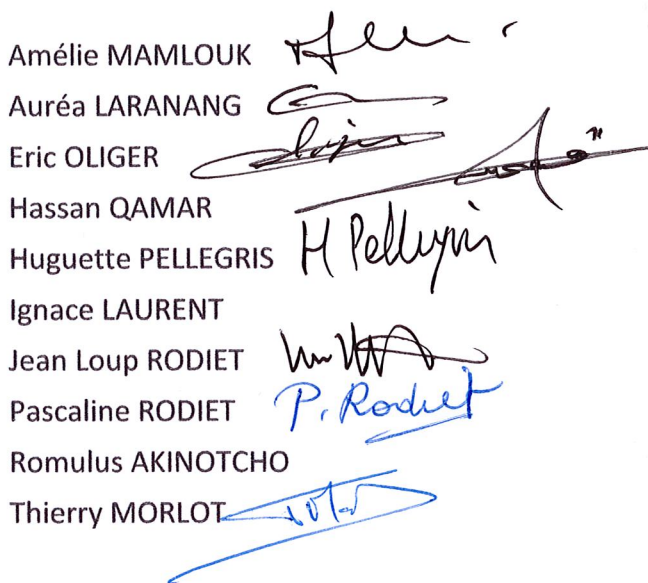 Amélie MAMLOUK
Auréa LARANANG
Eric OLIGER
Hassan QAMAR
Huguette PELLEGRIS H Pellegrin
Ignace LAURENT
Jean Loup RODIET
Pascaline RODIET P. Rodiet
Romulus AKINOTCHO
Thierry MORLOT